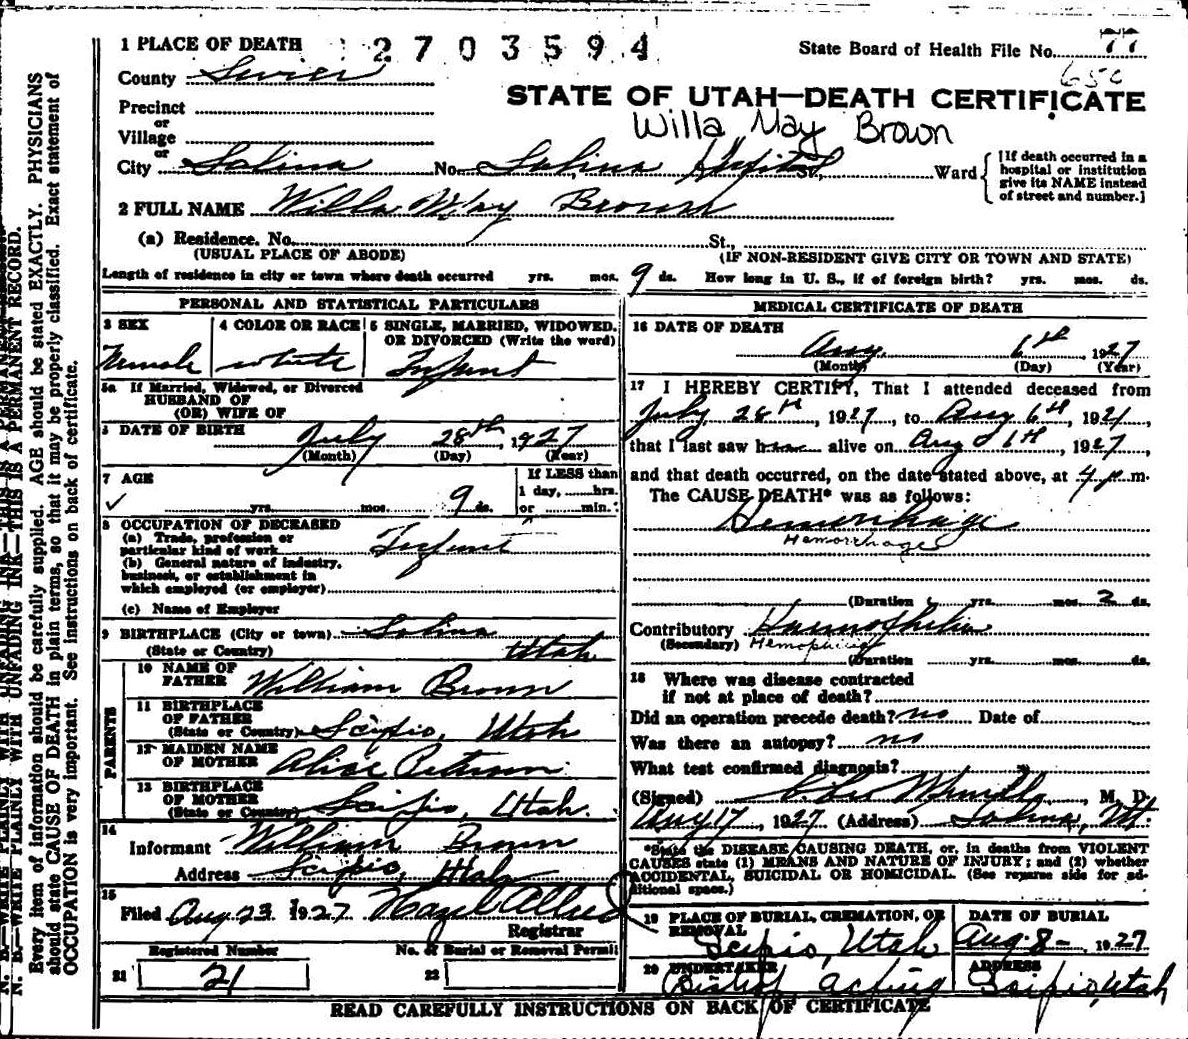 1 PLACE OF DEATH
2703594
State Board of Health File No. 77
County Sevier
650
STATE OF UTAH—DEATH CERTIFICATE
Precinct
or
Village
Willa May Brown
or
City Salina No. Salina Hospital St., Ward
[If death occurred in a
hospital or institution
give its NAME instead
of street and number.]
2 FULL NAME Willa May Brown
(a) Residence. No. St.,
(USUAL PLACE OF ABODE) (IF NON-RESIDENT GIVE CITY OR TOWN AND STATE)
Length of residence in city or town where death occurred yrs. mos. 9 ds. How long in U. S., if of foreign birth? yrs. mos. ds.
PERSONAL AND STATISTICAL PARTICULARS
3 SEX
Female
4 COLOR OR RACE
white
5 SINGLE, MARRIED, WIDOWED,
OR DIVORCED (Write the word)
Infant
5a If Married, Widowed, or Divorced
HUSBAND OF
(OR) WIFE OF
DATE OF BIRTH July 28th, 1927
(Month) (Day) (Year)
7 AGE
yrs. mos. 9 ds.
If LESS than
1 day, hrs.
or min.
8 OCCUPATION OF DECEASED
(a) Trade, profession or
particular kind of work Infant
(b) General nature of industry,
business, or establishment in
which employed (or employer)
(c) Name of Employer
9 BIRTHPLACE (City or town) Salina
(State or Country) Utah
PARENTS
10 NAME OF
FATHER William Brown
11 BIRTHPLACE
OF FATHER
(State or Country) Scipio, Utah
12 MAIDEN NAME
OF MOTHER Alice Peterson
13 BIRTHPLACE
OF MOTHER
(State or Country) Scipio, Utah.
14
Informant William Brown
Address Scipio, Utah
15
Filed Aug 23 1927 Hazel Allred
Registrar
Registered Number
21 21
No. of Burial or Removal Permit
22
MEDICAL CERTIFICATE OF DEATH
16 DATE OF DEATH
Aug. 6th, 1927
(Month) (Day) (Year)
17 I HEREBY CERTIFY, That I attended deceased from
July 28th, 1927, to Aug 6th, 1927,
that I last saw her alive on Aug 6th, 1927,
and that death occurred, on the date stated above, at 4 p m.
The CAUSE DEATH* was as follows:
Hemorrhage
Hemorrhage
(Duration yrs. mos. 2 ds.
Contributory Haemophilia
(Secondary) Hemophilia
(Duration yrs. mos. ds.
18 Where was disease contracted
if not at place of death?
Did an operation precede death? no Date of
Was there an autopsy? no
What test confirmed diagnosis?
(Signed) M. D.
Aug 17, 1927 (Address) Salina, Ut.
*State the DISEASE CAUSING DEATH, or, in deaths from VIOLENT
CAUSES state (1) MEANS AND NATURE OF INJURY; and (2) whether
ACCIDENTAL, SUICIDAL OR HOMICIDAL. (See reverse side for ad-
ditional space.)
19 PLACE OF BURIAL, CREMATION, OR
REMOVAL
Scipio, Utah
DATE OF BURIAL
Aug. 8- 1927
20 UNDERTAKER
Bishop acting
ADDRESS
Scipio, Utah
READ CAREFULLY INSTRUCTIONS ON BACK OF CERTIFICATE
N. B.—WRITE PLAINLY WITH UNFADING INK—THIS IS A PERMANENT RECORD.
Every item of information should be carefully supplied. AGE should be stated EXACTLY. PHYSICIANS
should state CAUSE OF DEATH in plain terms, so that it may be properly classified. Exact statement of
OCCUPATION is very important. See instructions on back of certificate.